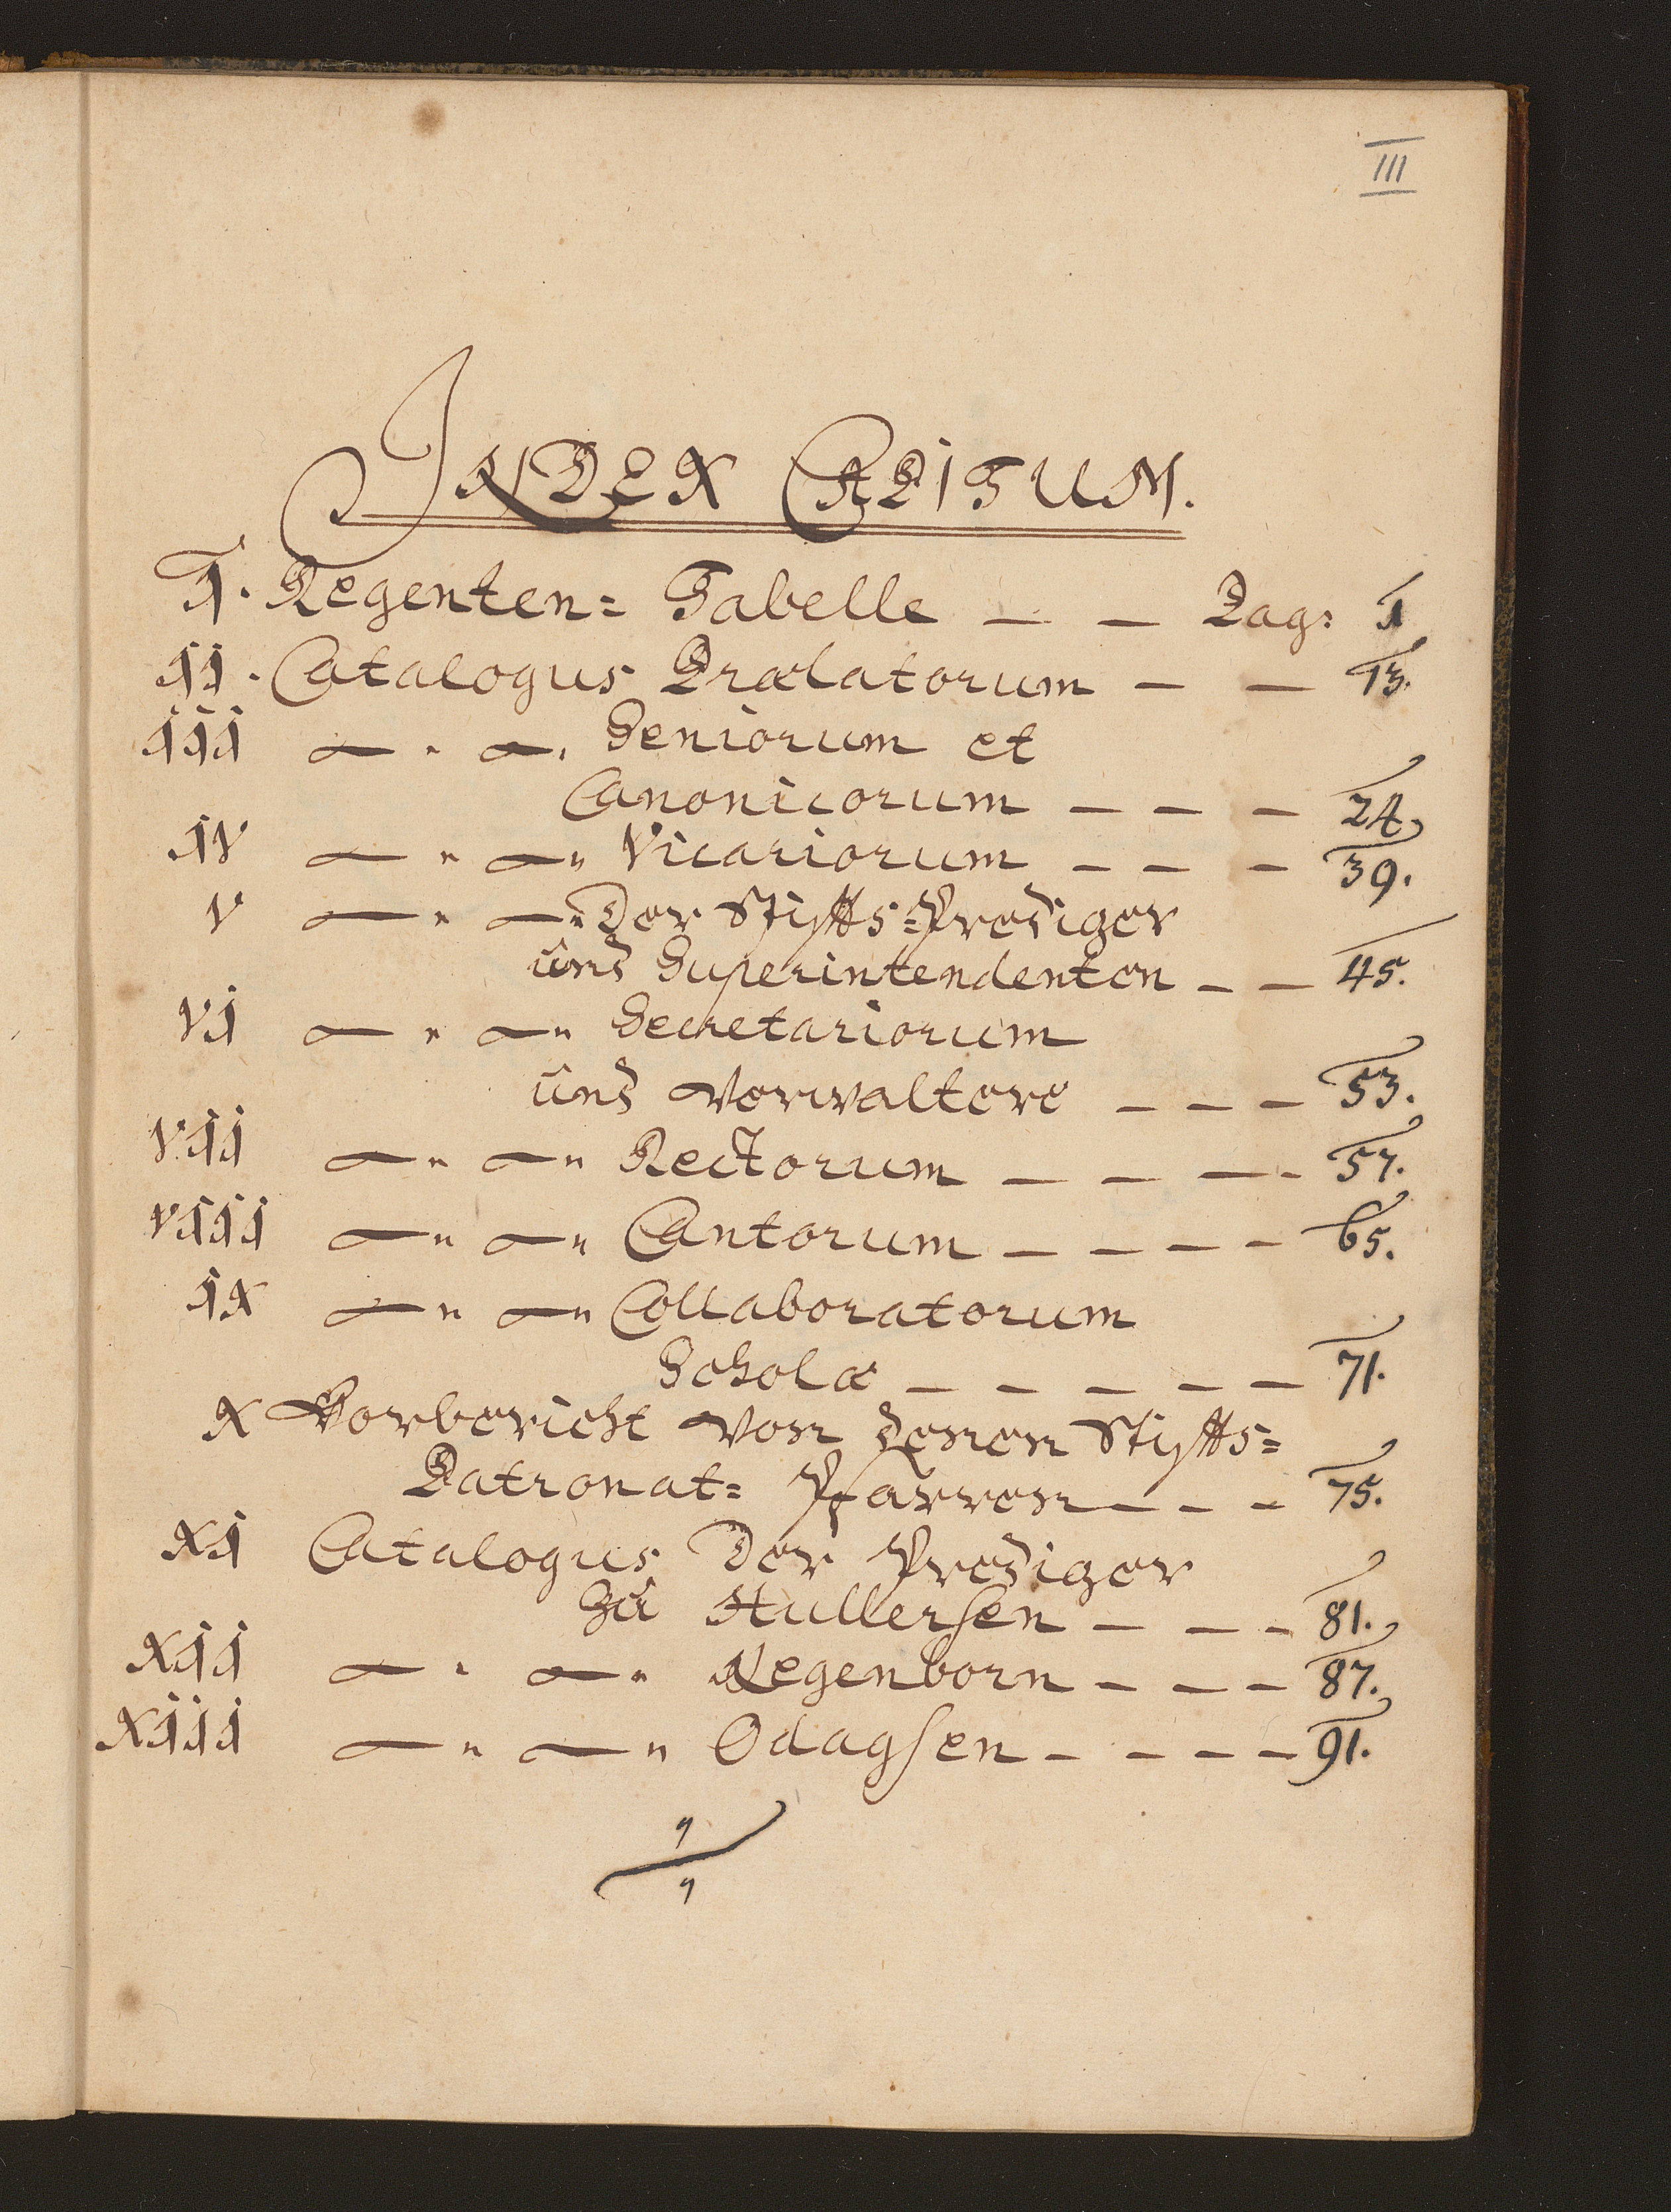 III
INDEX CAPITUM.
I. Regenten= Tabelle — — Pag: 1
II. Catalogus Prælatorum — — 13.
III — " — " Seniorum et
Canonicorum — — — 24.
IV — " — " Vicariorum — — — 39.
V — " — " Der Stiffts=Prediger
und Superintendenten — — 45.
VI — " — " Secretariorum
und Verwaltere — — — 53.
VII — " — " Rectorum — — — - 57.
VIII — " — " Cantorum — — — — 65.
IX — " — " Collaboratorum
Scholæ — — — — — 71.
X Vorbericht von denen Stiffts=
Patronat= Pfarren — — — 75.
XI Catalogus Der Prediger
zu Hullersen — — — 81.
XII — " — " Negenborn — — — 87.
XIII — " — " Odagsen — — — — 91.